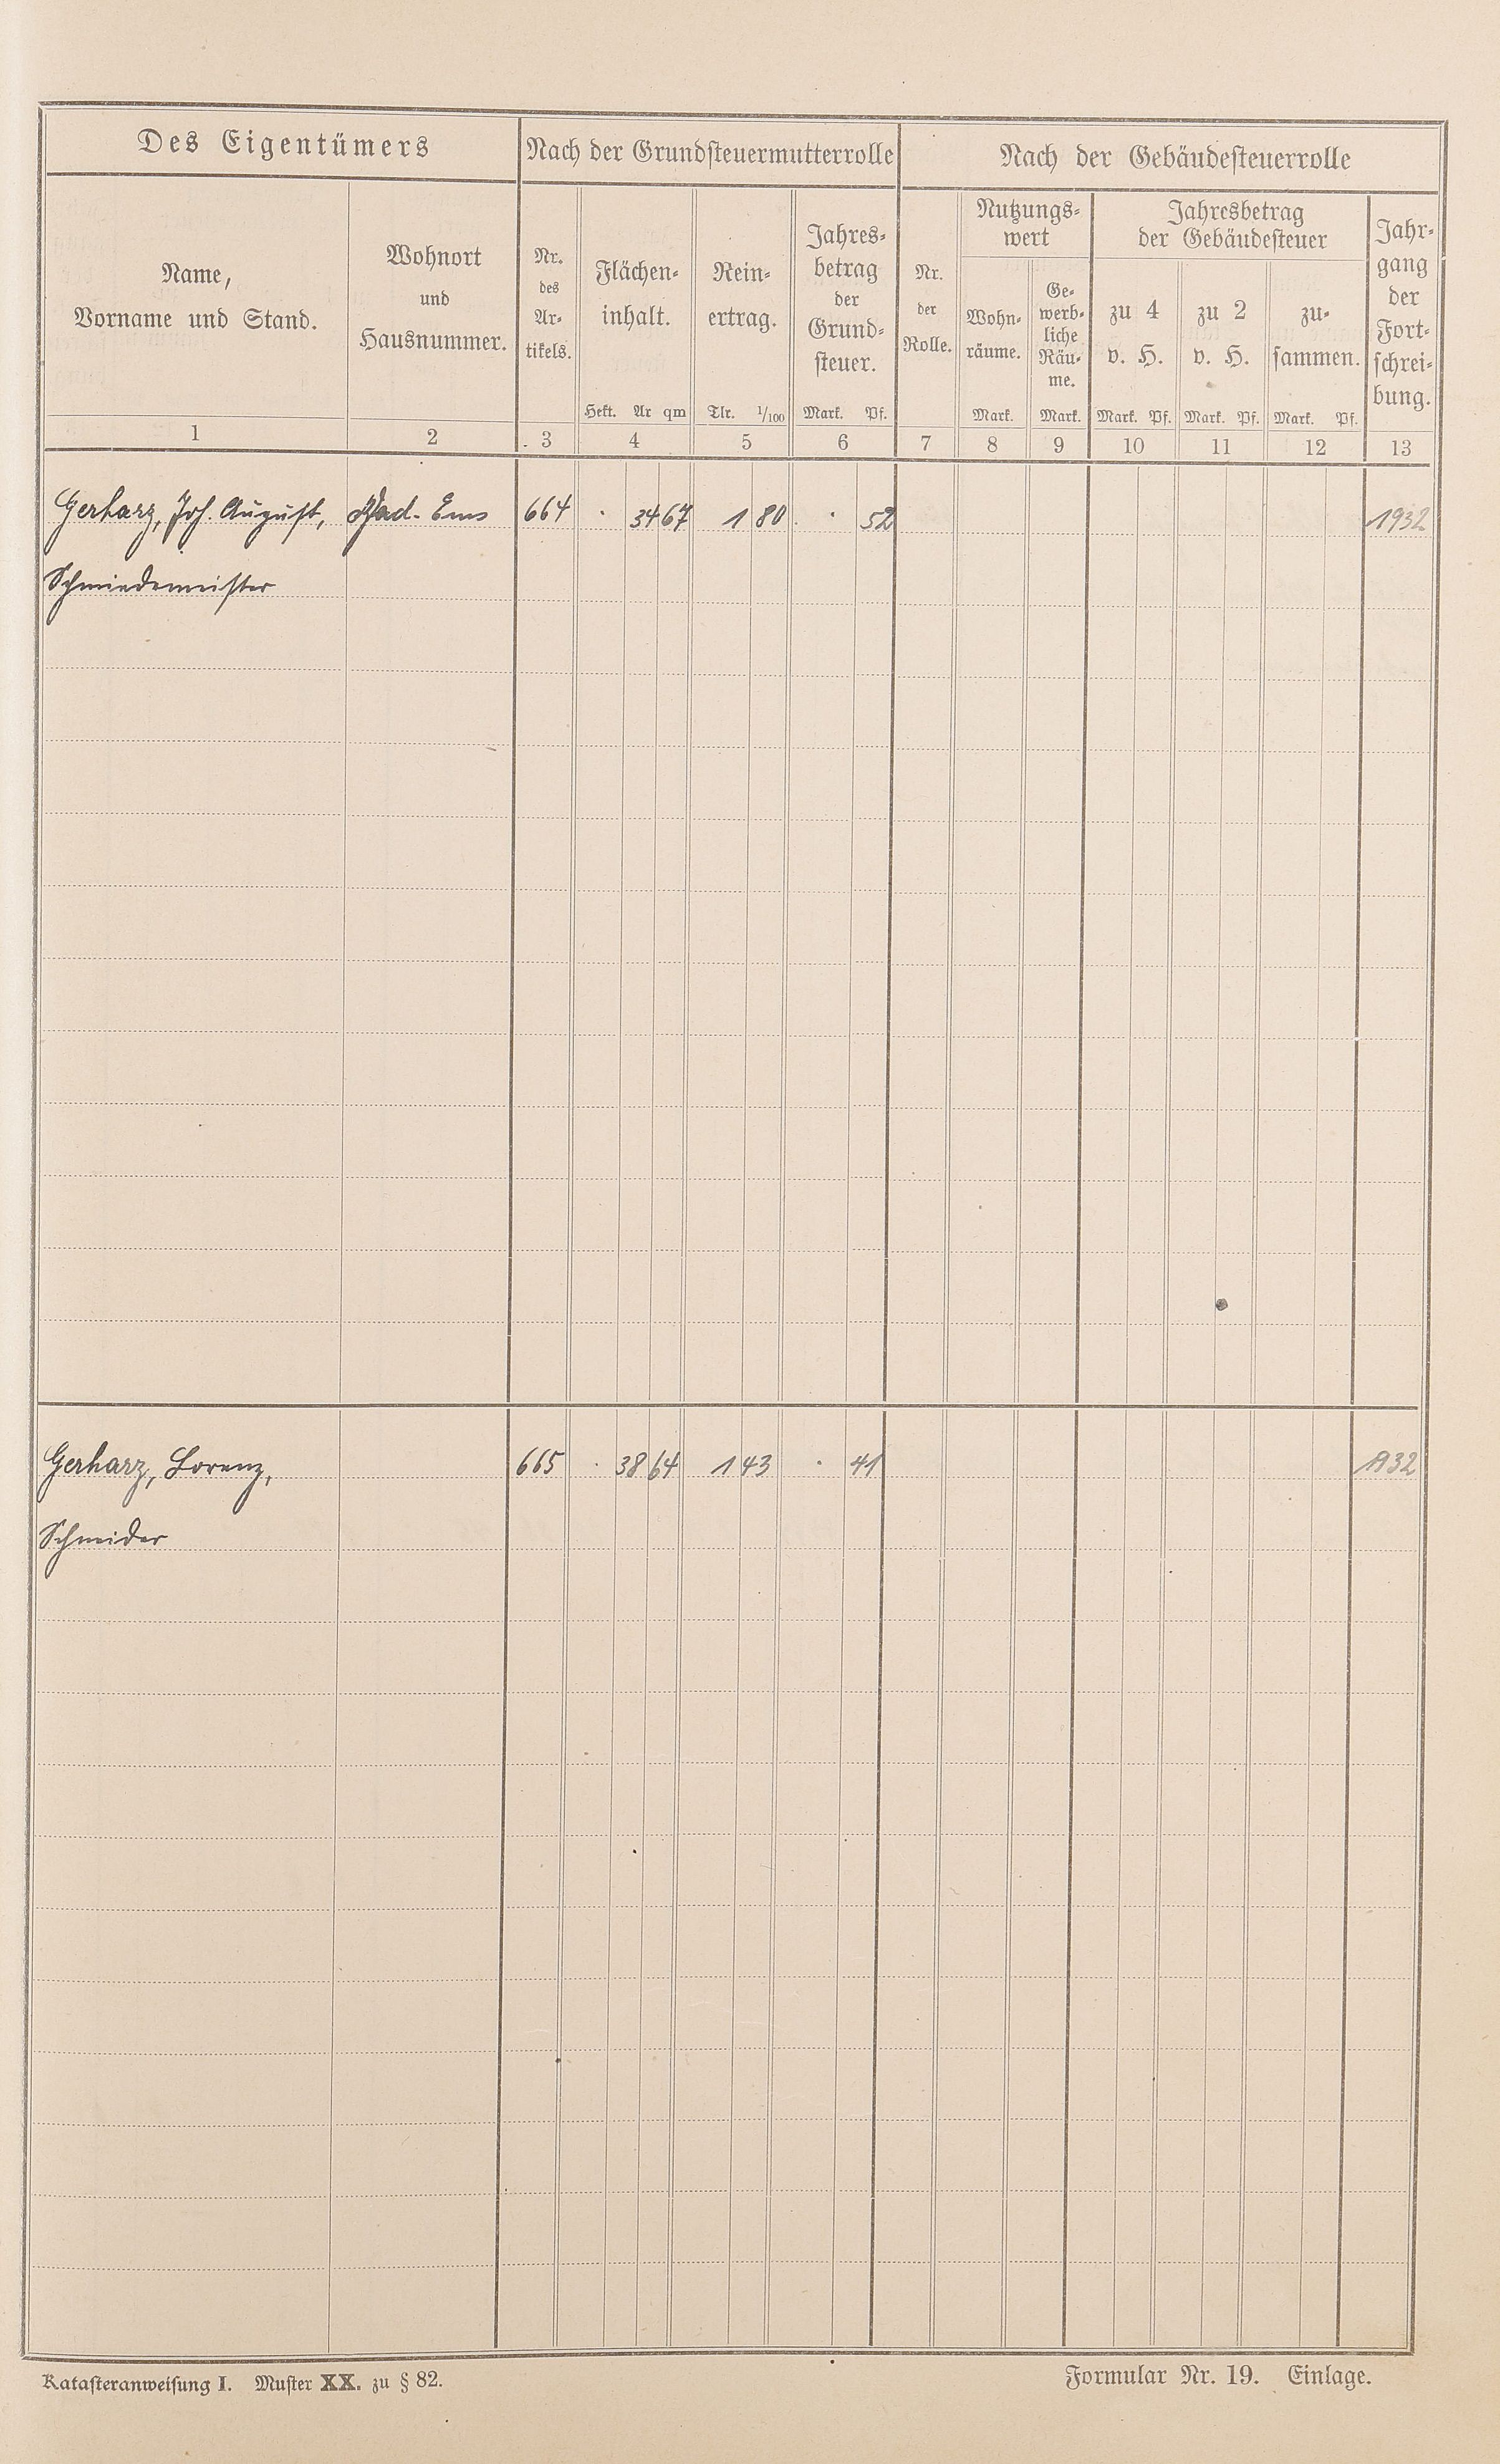 Des Eigentümers
Nach der Grundsteuermutterrolle
Nach der Gebäudesteuerrolle
Name,
Vorname und Stand.
Wohnort
und
Hausnummer.
Nr.
des
Ar-
tikels.
Flächen-
inhalt.
Hekt. Ar qm
Rein-
ertrag.
Tlr. 1/100
Jahres-
betrag
der
Grund-
steuer.
Mark. Pf.
Nr.
der
Rolle.
Nutzungs-
wert
Wohn-
räume.
Mark.
Ge-
werb-
liche
Räu-
me.
Mark.
Jahresbetrag
der Gebäudesteuer
zu 4
v. H.
Mark. Pf.
zu 2
v. H.
Mark. Pf.
zu-
sammen.
Mark. Pf.
Jahr-
gang
der
Fort-
schrei-
bung.
1 2 3 4 5 6 7 8 9 10 11 12 13
Gerharz, Joh. August, Bad-Ems 664 · 34 67 1 80 · 52 1932
Schmiedemeister
Gerharz, Lorenz, 665 · 38 64 1 43 · 41 1932
Schneider
Katasteranweisung I. Muster XX. zu § 82.
Formular Nr. 19. Einlage.